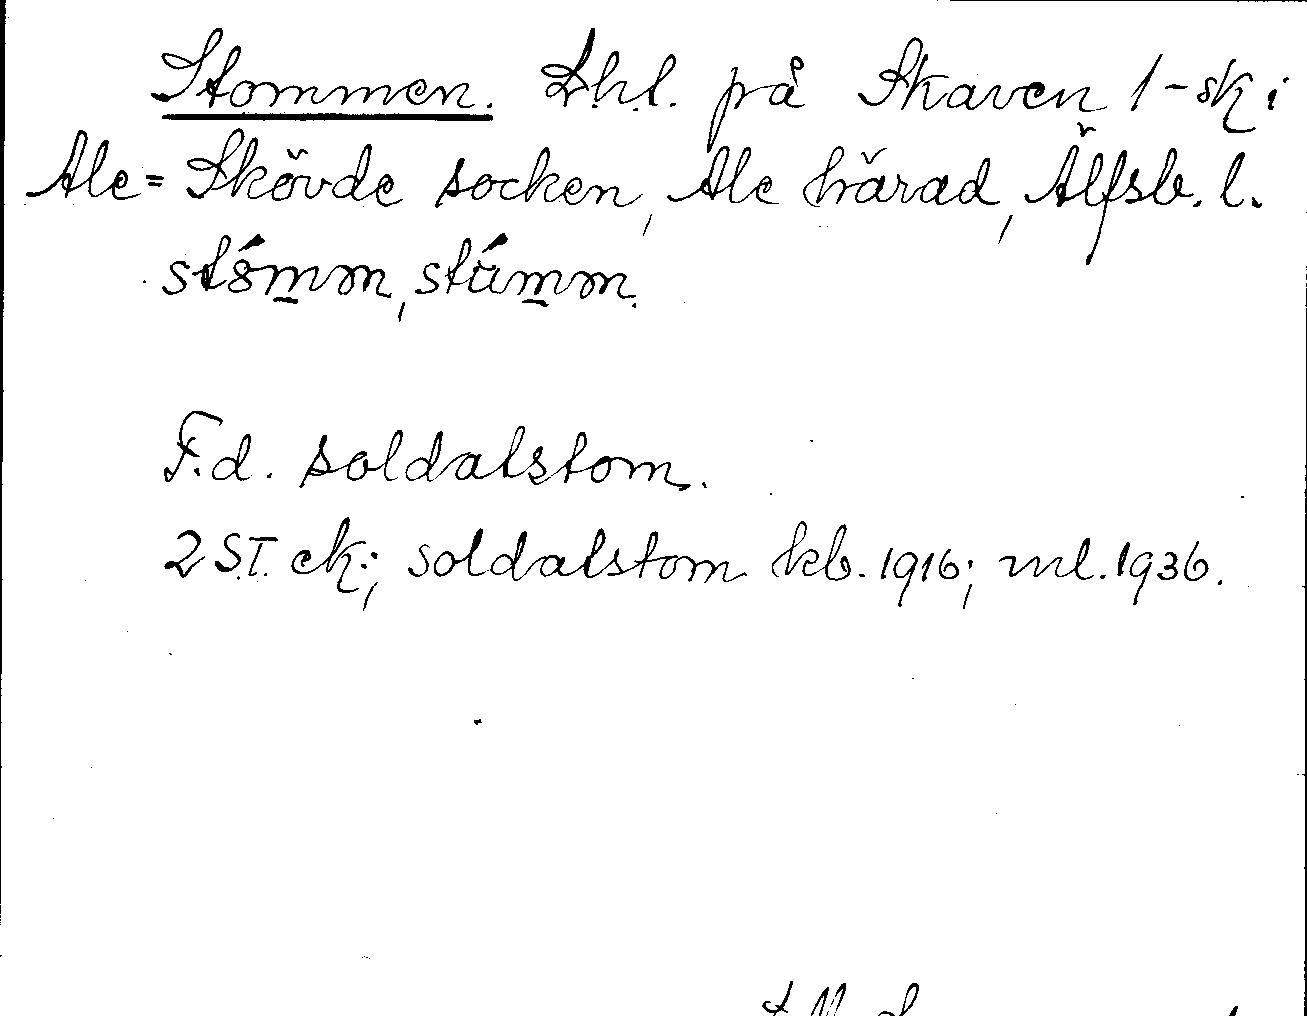 Stommen. Lhl. på Skaven 1-sk i
Ale=Skövde socken, Ale härad, Älfsb. l.
stómm, stúmm.
F.d. soldatstom.
2 S.T. ek:; soldatstom kb. 1916; ml. 1936.